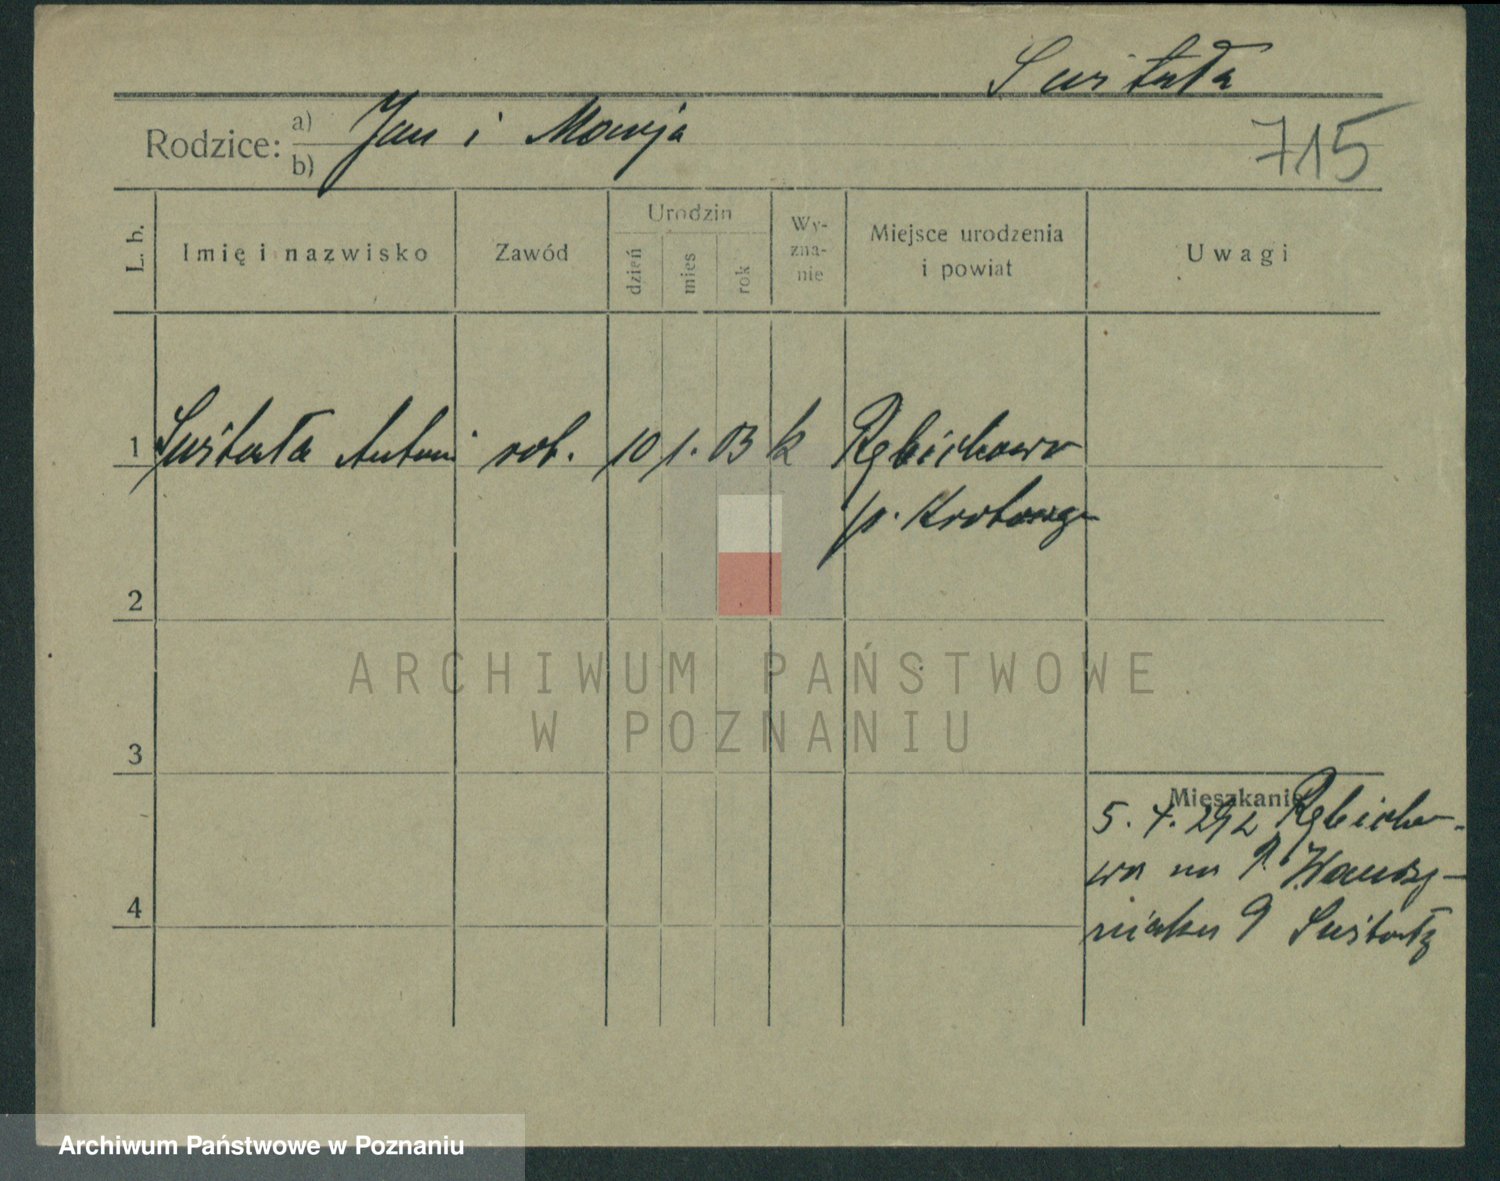 Suitała
Rodzice: a) Jan i Marija
b)
715
L. b.
Imię i nazwisko
Zawód
Urodzin
dzień
mies
rok
Wy-
zna-
nie
Miejsce urodzenia
i powiat
Uwagi
1 Suitała Antoni rob. 10 1. 03 k Rębichowo
p.
2
3
4
Mieszkanie
5. 4. 29 z Rębicho-
wa na
Suitałę
ARCHIWUM PAŃSTWOWE
W POZNANIU
Archiwum Państwowe w Poznaniu